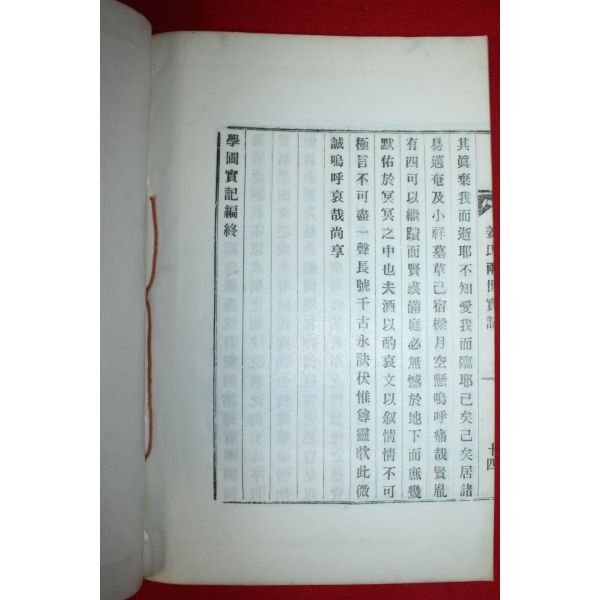 姜氏兩世實記
十四
其眞棄我而逝耶不知愛我而臨耶已矣已矣居諸
易邁奄及小祥墓草已宿樑月空懸嗚呼痛哉賢胤
有四可以繼蹟而賢彧滿庭必無憾於地下而庶幾
默佑於冥冥之中也夫酒以酌哀文以叙情情不可
極言不可盡一聲長號千古永訣伏惟尊靈歆此微
誠嗚呼哀哉尚享
學圃實記編終